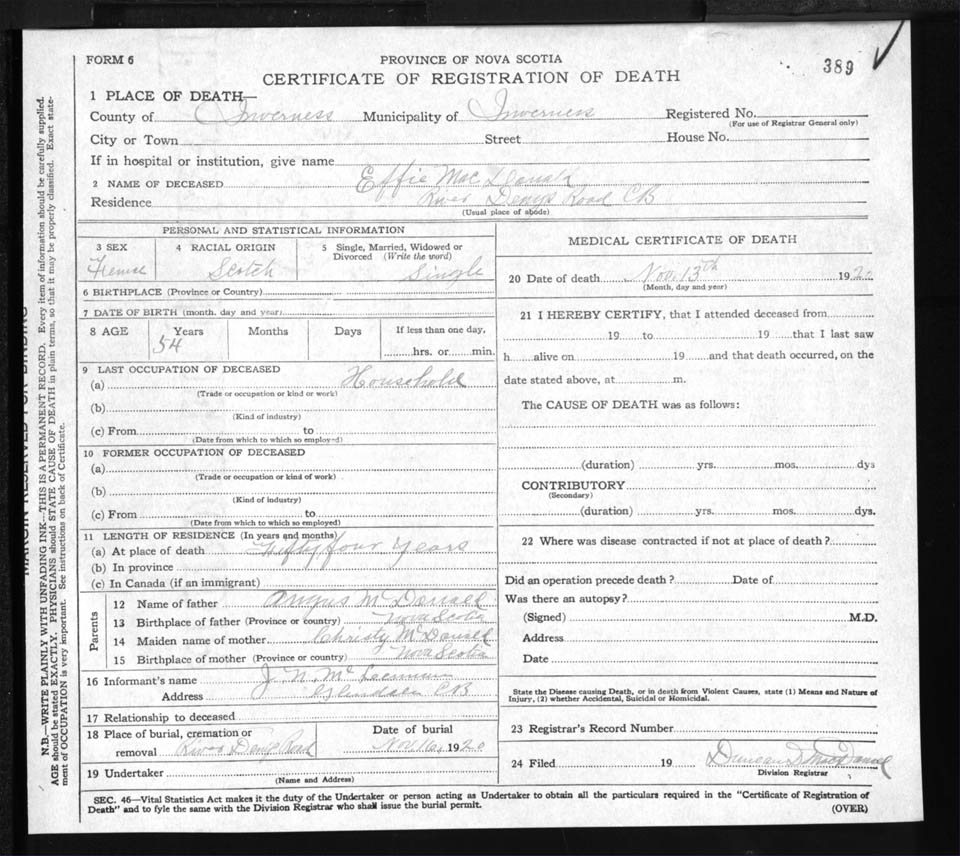 FORM 6
PROVINCE OF NOVA SCOTIA
389
CERTIFICATE OF REGISTRATION OF DEATH
1 PLACE OF DEATH—
County of Inverness Municipality of Inverness Registered No.
(For use of Registrar General only)
City or Town Street House No.
If in hospital or institution, give name
2 NAME OF DECEASED Effie Mac Donald
Residence River Denys Road CB
(Usual place of abode)
PERSONAL AND STATISTICAL INFORMATION
3 SEX 4 RACIAL ORIGIN 5 Single, Married, Widowed or
Divorced (Write the word)
Scotch Single
6 BIRTHPLACE (Province or Country)
7 DATE OF BIRTH (month, day and year)
8 AGE Years Months Days If less than one day,
54
hrs. or min.
9 LAST OCCUPATION OF DECEASED
(a) Household
(Trade or occupation or kind or work)
(b)
(Kind of industry)
(c) From to
(Date from which to which so employed)
10 FORMER OCCUPATION OF DECEASED
(a)
(Trade or occupation or kind of work)
(b)
(Kind of industry)
(c) From to
(Date from which to which so employed)
11 LENGTH OF RESIDENCE (In years and months)
(a) At place of death Fifty four Years
(b) In province
(c) In Canada (if an immigrant)
Parents
12 Name of father Angus McDonald
13 Birthplace of father (Province or country) Nova Scotia
14 Maiden name of mother Christy McDonald
15 Birthplace of mother (Province or country) Nova Scotia
16 Informant's name J. N. Mc
Address Glendale CB
17 Relationship to deceased
18 Place of burial, cremation or Date of burial
removal River Denys Road Nov 16, 1920
19 Undertaker
(Name and Address)
MEDICAL CERTIFICATE OF DEATH
20 Date of death Nov. 13th 1920
(Month, day and year)
21 I HEREBY CERTIFY, that I attended deceased from
19 to 19 that I last saw
h alive on 19 and that death occurred, on the
date stated above, at m.
The CAUSE OF DEATH was as follows:
(duration) yrs. mos. dys
CONTRIBUTORY
(Secondary)
(duration) yrs. mos. dys.
22 Where was disease contracted if not at place of death?
Did an operation precede death? Date of
Was there an autopsy?
(Signed) M.D.
Address
Date
State the Disease causing Death, or in death from Violent Causes, state (1) Means and Nature of
Injury, (2) whether Accidental, Suicidal or Homicidal.
23 Registrar's Record Number
24 Filed 19 Duncan D MacDonald
Division Registrar
SEC. 46—Vital Statistics Act makes it the duty of the Undertaker or person acting as Undertaker to obtain all the particulars required in the "Certificate of Registration of
Death" and to fyle the same with the Division Registrar who shall issue the burial permit. (OVER)
MARGIN RESERVED FOR BINDING
N.B.—WRITE PLAINLY WITH UNFADING INK—THIS IS A PERMANENT RECORD. Every item of information should be carefully supplied.
AGE should be stated EXACTLY. PHYSICIANS should STATE CAUSE OF DEATH in plain terms, so that it may be properly classified. Exact state-
ment of OCCUPATION is very important. See instructions on back of Certificate.